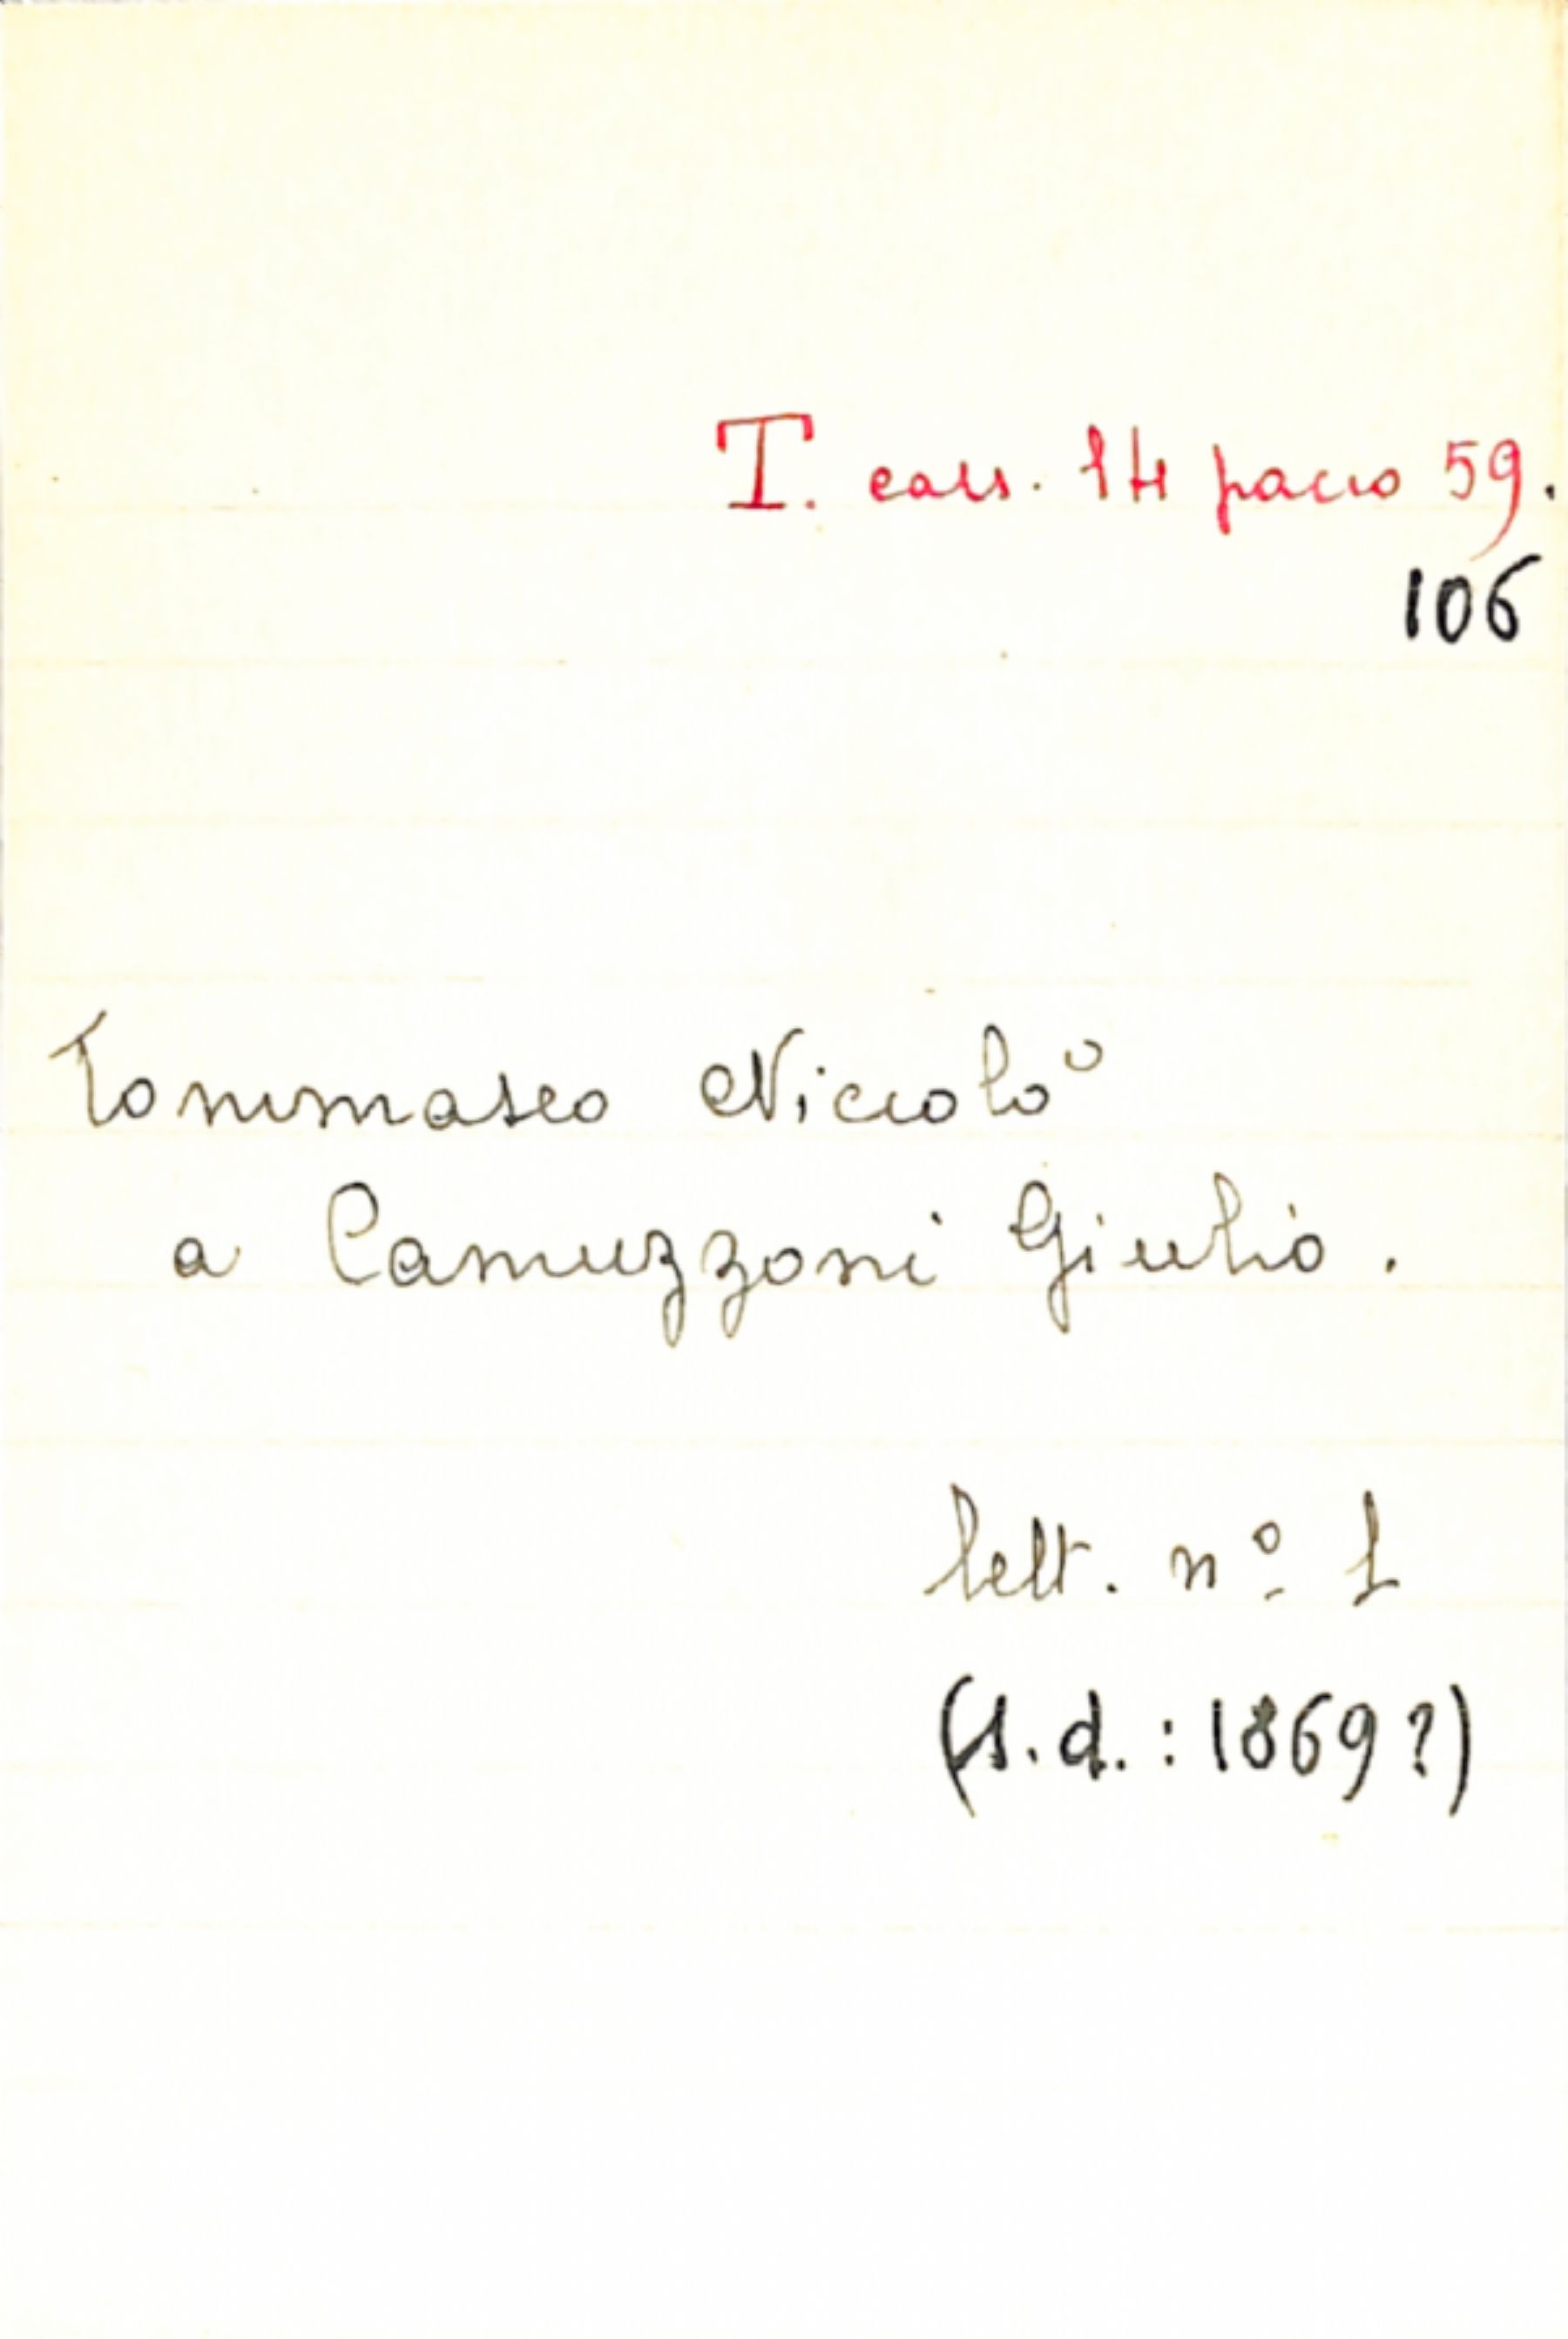 T. cass. 14 pacco 59.
106
Tommaseo Niccolò
a Camuzzoni Giulio.
lett. nº 1
(s.d.: 1869?)